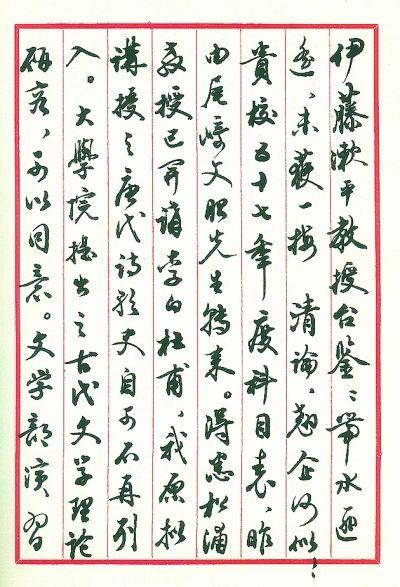 伊藤漱平教授台鉴：帶水迩
遥，未获一接清論，翘企何似！
貴校五十七年度科目表，昨
由尾崎文昭先生转来。得悉松浦
教授已开講李白杜甫，我原拟
講授之唐代詩歌史自可不再列
入。大學院提出之古代文学理论
研究，可以同意。文学部演習